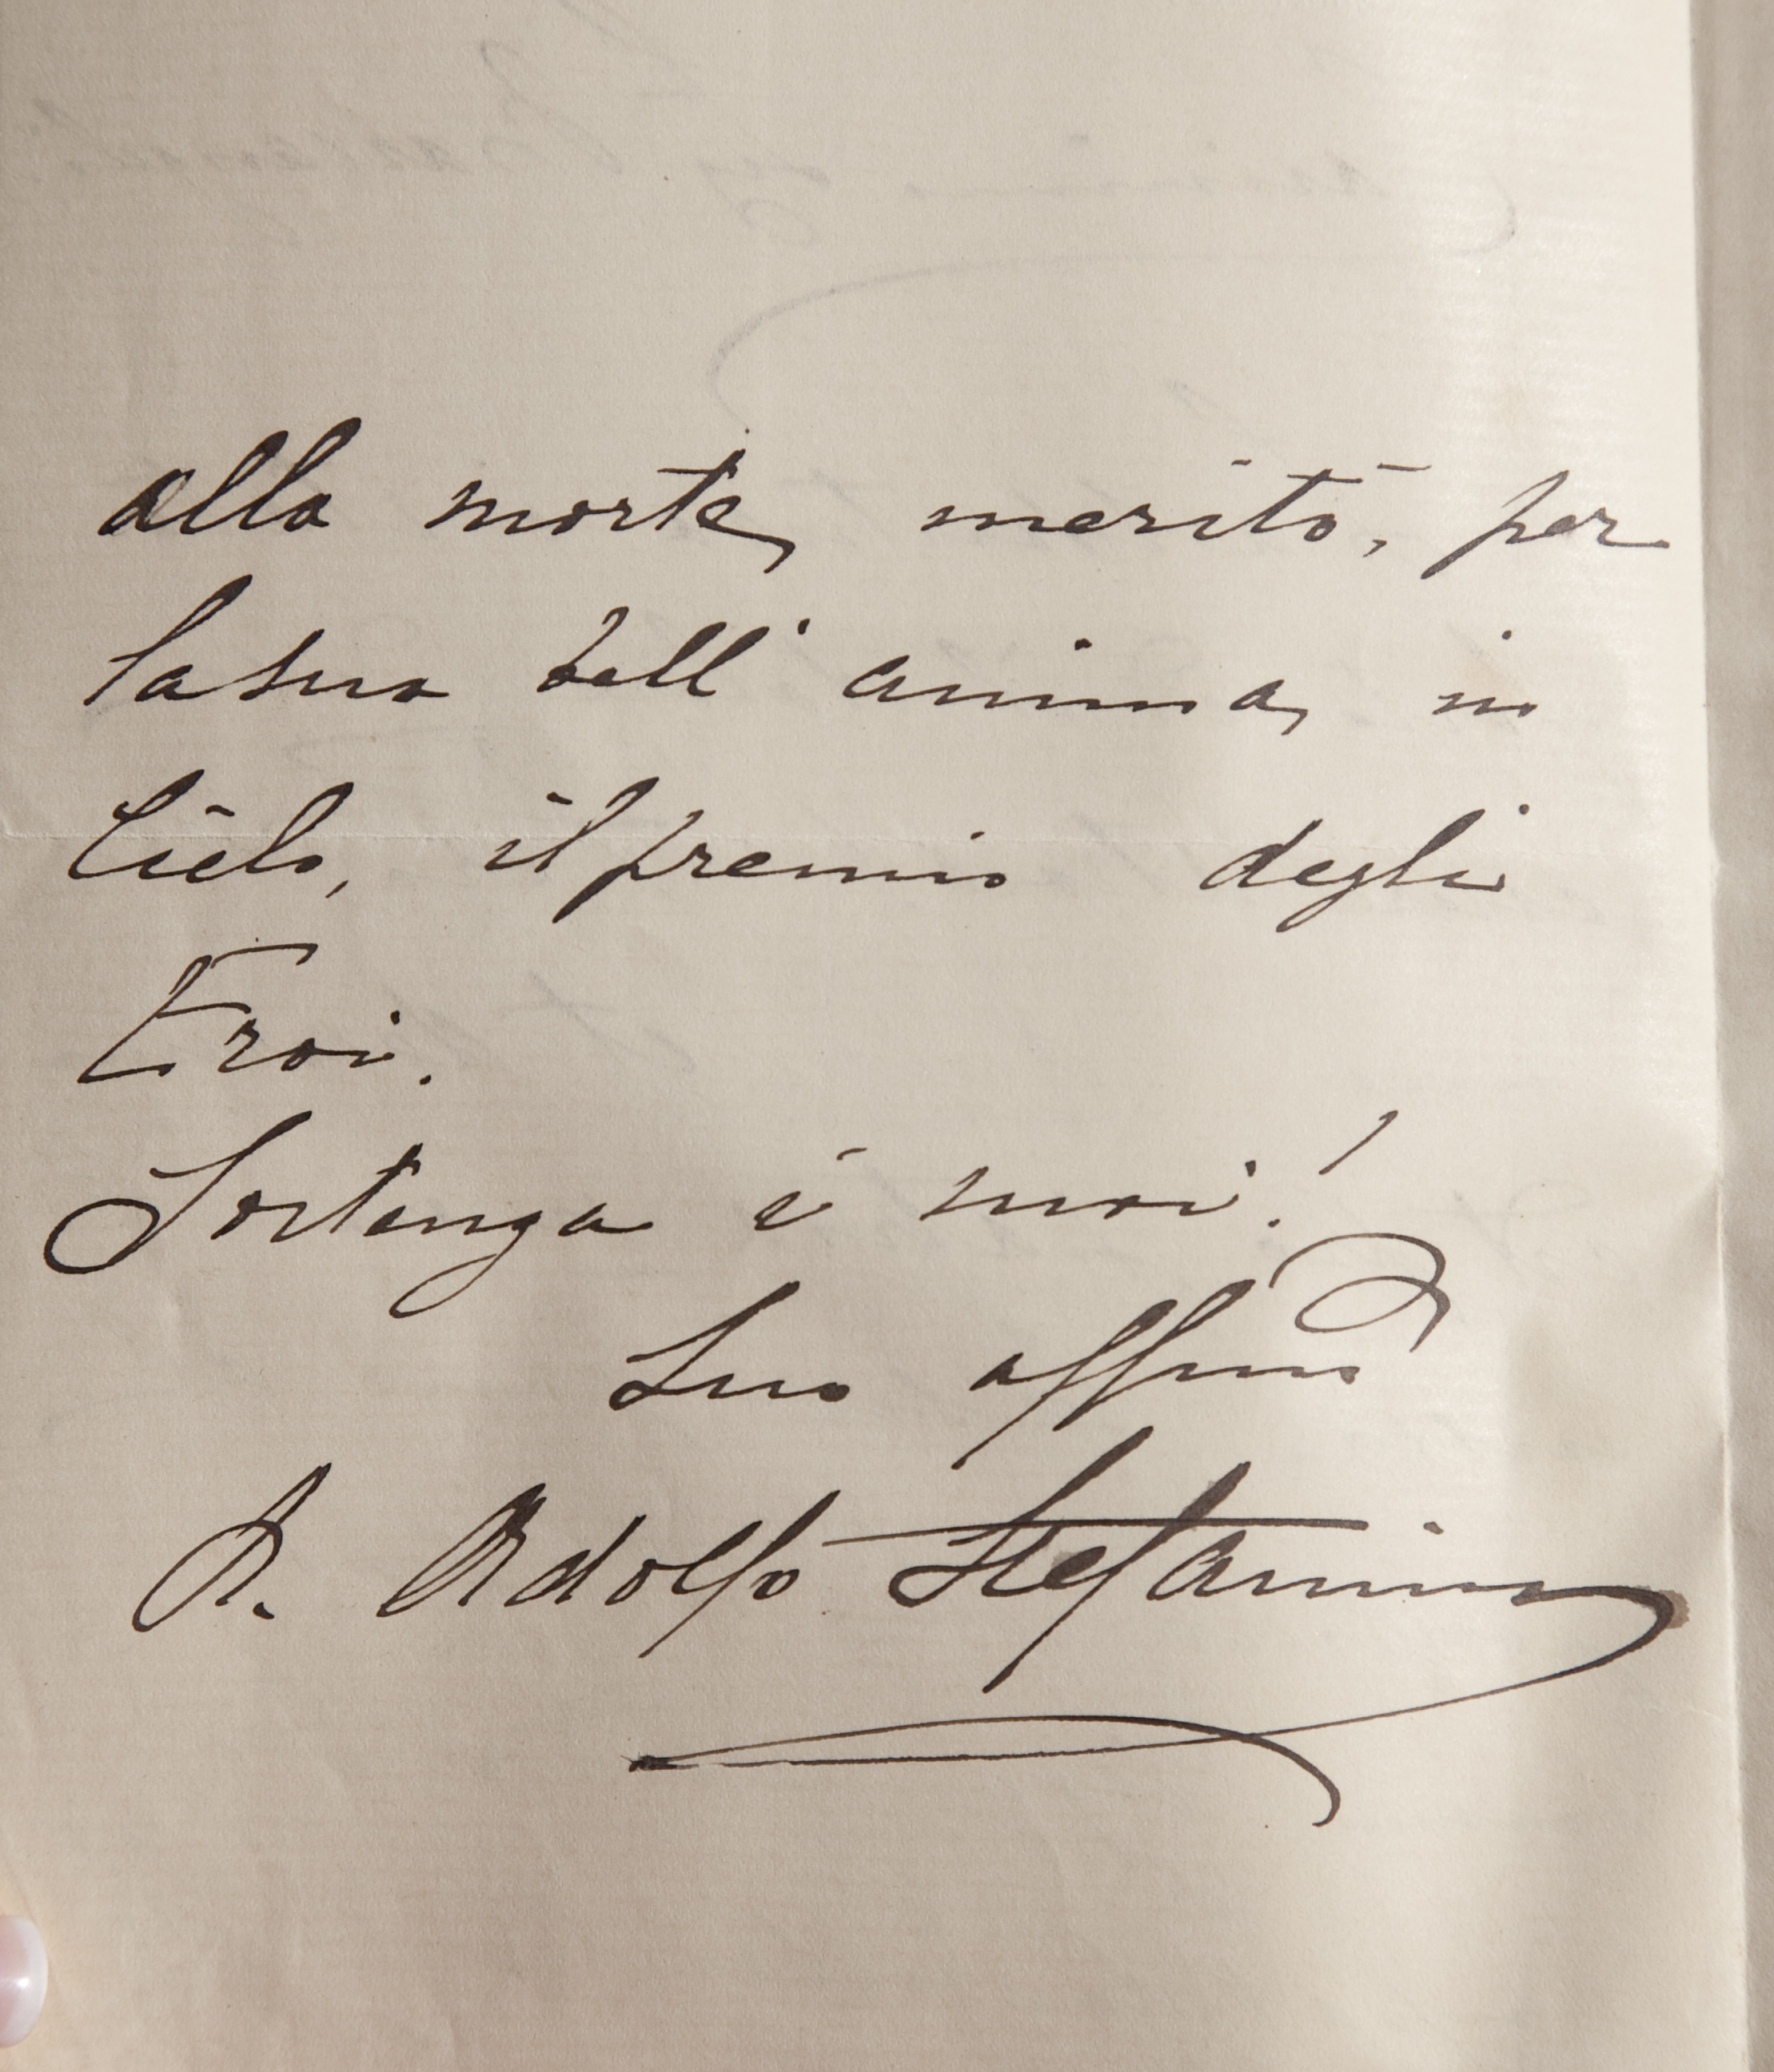 alla morte, meritò, per
la sua bell' anima, in
Cielo, il premio degli
Eroi.
Sostenga i suoi!
Suo affmo
P. Adolfo Stefanini